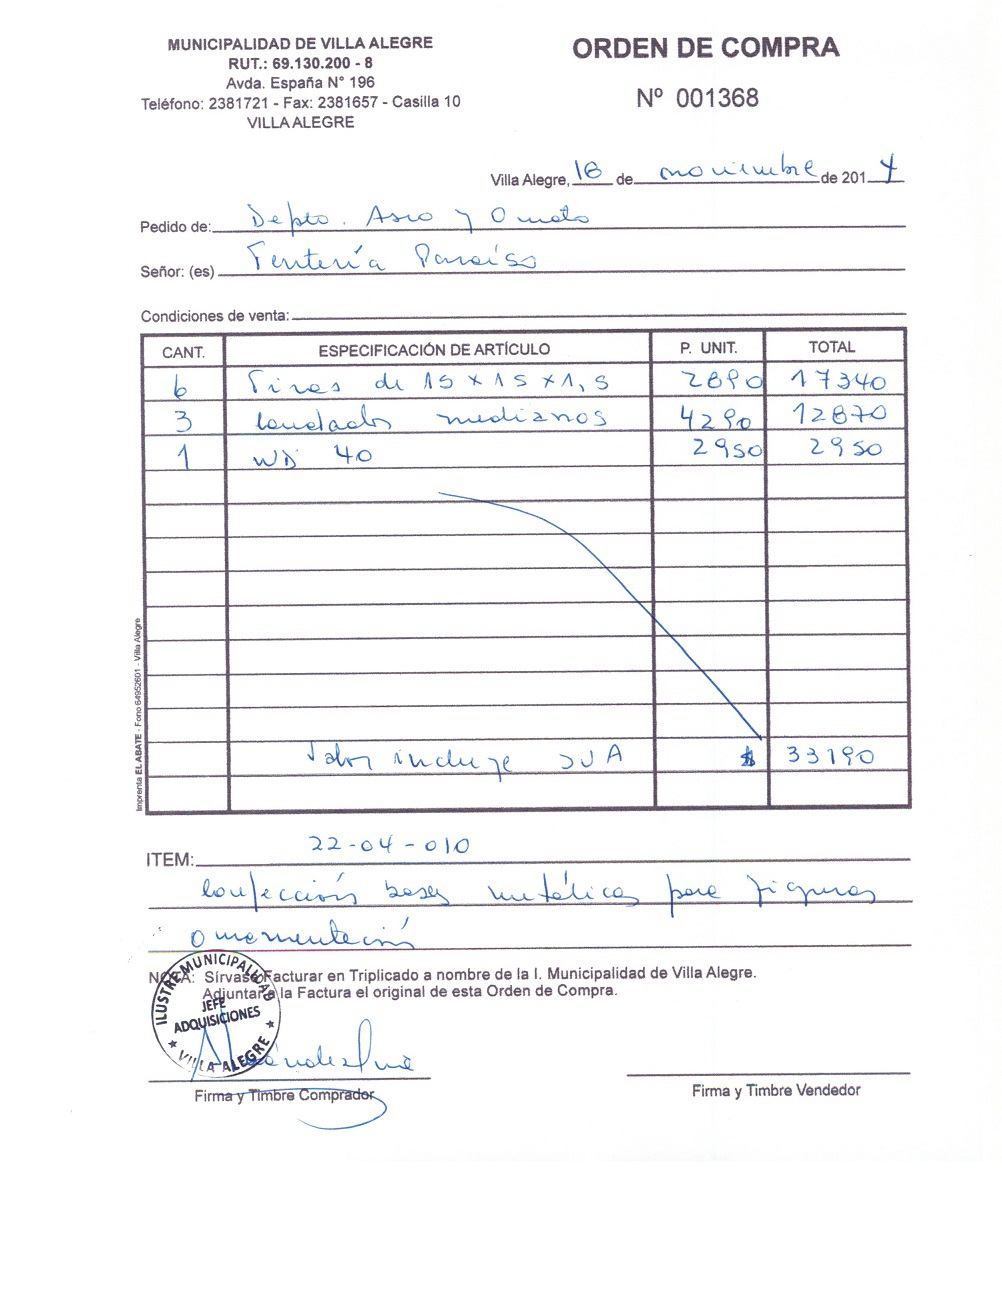 MUNICIPALIDAD DE VILLA ALEGRE
RUT.: 69.130.200 - 8
Avda. España N° 196
Teléfono: 2381721 - Fax: 2381657 - Casilla 10
VILLA ALEGRE
ORDEN DE COMPRA
Nº 001368
Villa Alegre, 18 de noviembre de 2014
Pedido de: Depto. Aseo y Ornato
Señor: (es) Ferretería Paraíso
Condiciones de venta:
CANT. ESPECIFICACIÓN DE ARTÍCULO P. UNIT. TOTAL
6 Tiras de 15 x 15 x 1,5 2890 17340
3 candados medianos 4290 12870
1 WD 40 2950 2950
Valor incluye IVA $ 33190
Imprenta EL ABATE - Fono 64952601 - Villa Alegre
ITEM: 22-04-010
Confección bases metálicas para figuras
ornamentación
NOTA: Sírvase Facturar en Triplicado a nombre de la I. Municipalidad de Villa Alegre.
Adjuntar a la Factura el original de esta Orden de Compra.
ILUSTRE MUNICIPALIDAD
JEFE
ADQUISICIONES
VILLA ALEGRE
Firma y Timbre Comprador
Firma y Timbre Vendedor